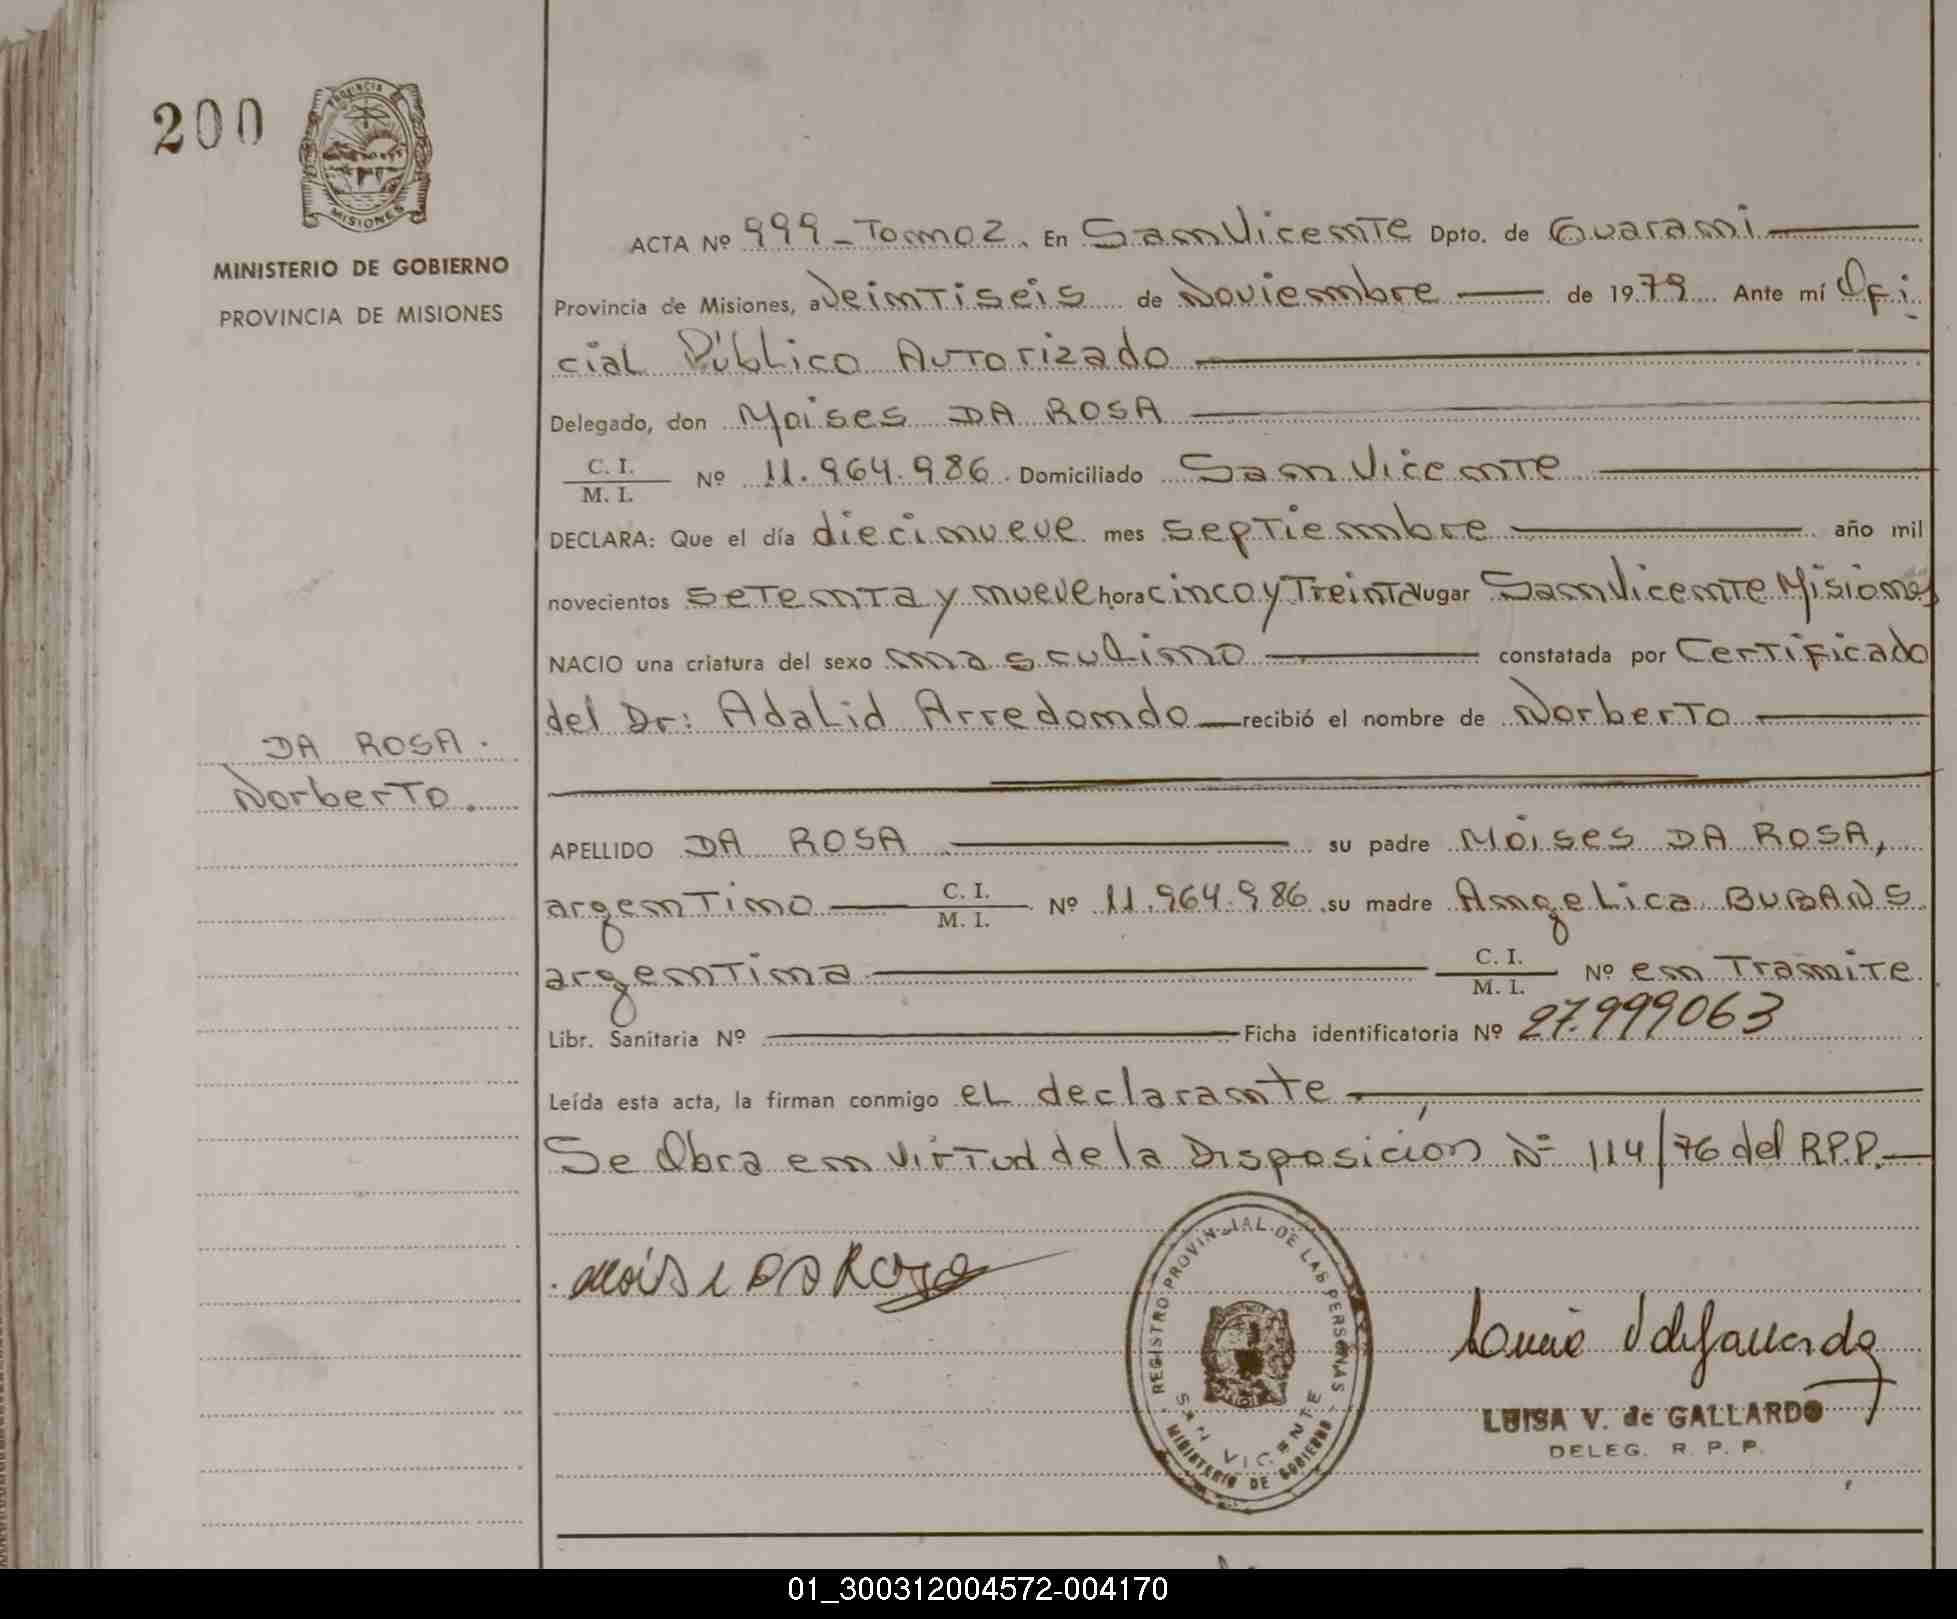 200
PROVINCIA DE
MISIONES
MINISTERIO DE GOBIERNO
PROVINCIA DE MISIONES
ACTA Nº 999 - Tomo 2. En San Vicente Dpto. de Guarani
Provincia de Misiones, a Veintiseis de Noviembre de 1979 Ante mí Ofi
cial Público Autorizado
Delegado, don Moises DA ROSA
C. I.
M. I. Nº 11.964.986. Domiciliado San Vicente
DECLARA: Que el día diecinueve mes septiembre año mil
novecientos setenta y nueve hora cinco y Treinta lugar San Vicente Misiones
NACIO una criatura del sexo masculino constatada por Certificado
del Dr: Adalid Arredondo recibió el nombre de Norberto
DA ROSA.
Norberto.
APELLIDO DA ROSA su padre Moises DA ROSA,
argentino C. I.
M. I. Nº 11.964.986 su madre Angelica BUBANS
argentina C. I.
M. I. Nº en Tramite
Libr. Sanitaria Nº Ficha identificatoria Nº 27.999063
Leída esta acta, la firman conmigo el declarante
Se Obra en virtud de la Disposición Nº 114/76 del R.P.P.
Moisé DA Rosa
REGISTRO PROVINCIAL DE LAS PERSONAS
SAN VICENTE
MINISTERIO DE GOBIERNO
LUISA V. de GALLARDO
DELEG. R. P. P.
01_300312004572-004170